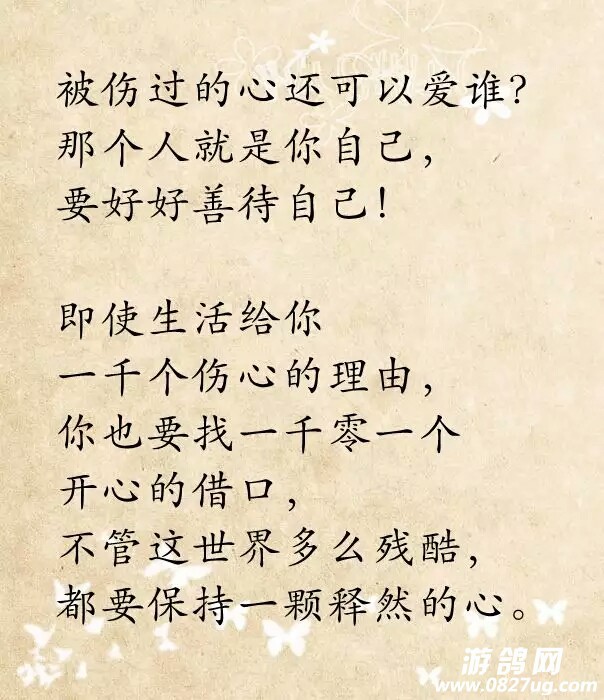 被伤过的心还可以爱谁?
那个人就是你自己,
要好好善待自己!
即使生活给你
一千个伤心的理由,
你也要找一千零一个
开心的借口,
不管这世界多么残酷,
都要保持一颗释然的心。
游鸽网
www.0827ug.com